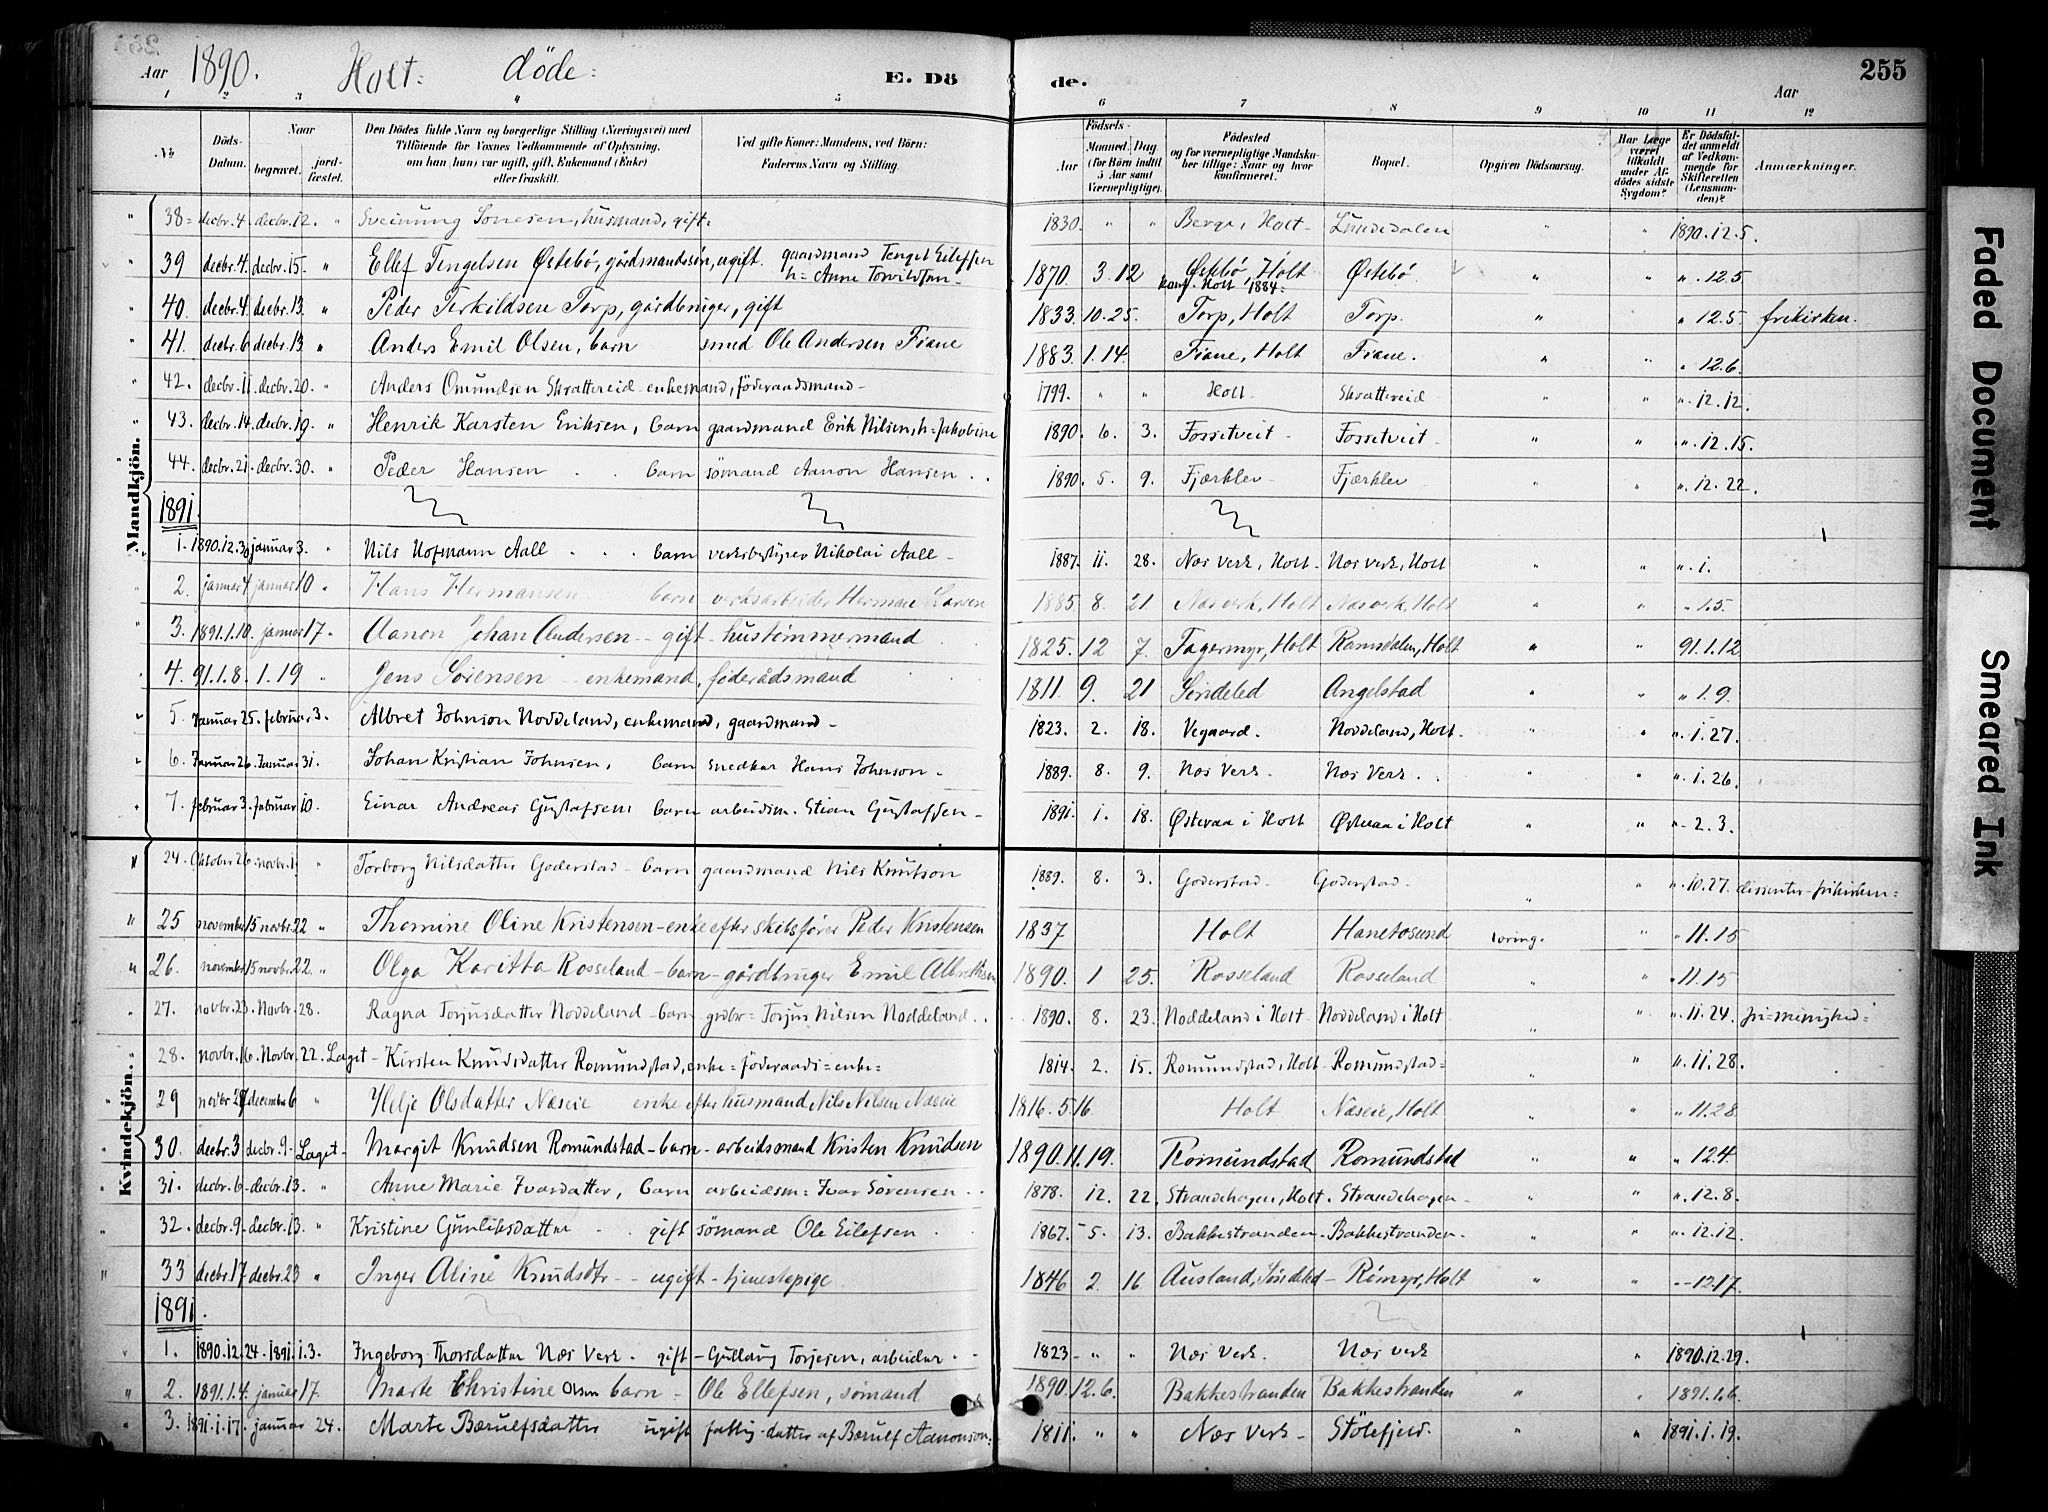 Aar 1890. Holt: døde: E. Dö de. Aar 255
1 2 3 4 5 6 7 8 9 10 11 12
№ Döds-Datum. Naar begravet. jord-fæstet. Den Dödes fulde Navn og borgerlige Stilling (Næringsvei) med Tilföiende for Voxnes Vedkommende af Oplysning, om han (hun) var ugift, gift, Enkemand (Enke) eller fraskilt. Ved gifte Koner: Mandens, ved Börn: Faderens Navn og Stilling. Födsels- Aar Maaned. Dag. (for Börn indtil 5 Aar samt Værnepligtige). Födested og for værnepligtige Mandskaber tillige: Naar og hvor konfirmeret. Bopæl. Opgiven Dödsaarsag. Har Læge været tilkaldt under Afdödes sidste Sygdom? Er Dödsfaldet anmeldt af Vedkommende for Skifteretten (Lensmanden)? Anmærkninger.
Mandkjön.
" 38 decbr. 4. decbr. 12. " Sveinung Sonesen, husmand, gift. 1830. " " Berge, Holt Lundedalen " " 1890.12.5.
" 39 decbr. 4. decbr. 15. " Ellef Tengelsen Østebø, gårdmandssøn, ugift. gaardmand Tengel Eilefsen
h= Anne 1870. 3. 12 Østebø, Holt Østebø " " " 12.5
konf. Holt 1884.
" 40. decbr. 4 decbr. 13. " Peder Terkildsen Torp, gårdbruger, gift 1833. 10. 25. Torp, Holt Torp. " " " 12.5. frikirken.
" 41. decbr. 6 decbr. 13 " Anders Emil Olsen, barn smed Ole Andersen Fiane 1883. 1. 14. Fiane, Holt Fiane. " " " 12.6.
" 42. decbr. 11. decbr. 20. " Anders Omundsen Skrattereid - enkemand, føderaadsmand - 1799. " " Holt Skrattereid " " " 12.12.
" 43. decbr. 14. decbr. 19. " Henrik Karsten Eriksen, barn gaardmand Erik Nilsen, h= Jakobine 1890. 6. 3. Fossetveit - Fossetveit - " " " 12.15.
44. decbr. 21. decbr. 30. " Peder Hansen . . barn sømand Aanon Hansen . . 1890. 5. 9. Fjærklev Fjærklev " " " 12.22.
1891.
" 1. 1890.12.30 januar 3. " Nils Hofmann Aall . . . barn verksbestyrer Nikolai Aall - 1887. 11. 28. Næs Verk, Holt - Næs Verk, Holt " " " 1.
" 2. januar 4 januar 10 " Hans Hermansen barn verksarbeider Herman Larsen 1885. 8. 21 Næs verk, Holt Næs verk, Holt " " " 1.5.
" 3. 1891.1.10. januar 17. " Aanon Johan Andersen - gift - hustømmermand 1825. 12 7. Fagermyr, Holt Ramsdalen, Holt " " 91.1.12
4. 91.1.8. 1.19 " Jens Sørensen - enkemand, føderådsmand 1811. 9. 21 Søndeled Angelstad " " " 1.9.
" 5. Januar 25. februar 3. Albret Johnson Noddeland, enkemand, gaardmand - 1823. 2. 18. Vegaard. Noddeland, Holt. " " " 1.27.
" 6. Januar 26. Januar 31. Johan Kristian Johnsen, barn snedker Hans Johnson - 1889. 8. 9. Næs Verk. Næs Verk . . " " " 1.26.
" 7. februar 3. februar 10. Einar Andreas Gustafsen barn arbeidsm. Stian Gustafsen - 1891. 1. 18. Østeraa i Holt Østeraa i Holt " " " 2.3.
Kvindekjön.
" 24. Oktober 26. novbr. 1. " Torborg Nilsdatter Goderstad - barn gaardmand Nils Knutson 1889. 8. 3. Goderstad - Goderstad - " " " 10.27. dissenter - frikirken =
" 25 november 15 novbr. 22 " Thomine Oline Kristensen - enke efter skibsfører Peder Kristensen 1837 Holt Hanetosund tæring. " " 11.15
" 26. november 15 novbr. 22. " Olga Karitta Rosseland - barn - gårdbruger Emil Albrethsen 1890. 1 25. Rosseland Rosseland " " " 11.15
" 27. novbr. 23. Novbr. 28. Ragna Torjusdatter Noddeland - barn - grdbr = Torjus Nilsen Noddeland . . 1890. 8. 23. Noddeland i Holt - Noddeland i Holt " " " 11.24. fri=menighed =
" 28. novbr. 16. Novbr. 22. Laget - Kirsten Knudsdatter Romundstad, enke = føderaads = enke = 1814. 2. 15. Romundstad, Holt - Romundstad = " " " 11.28.
" 29 novbr 28 december 6 " Helje Olsdatter Næseie enke efter husmand Nils Nilsen Næseie 1816. 5. 16. Holt Næseie, Holt " " " 11.28
" 30. decbr. 3 decbr. 9 - Laget - Margit Knudsen Romundstad - barn - arbeidsmand Kristen Knudsen 1890. 11. 19. Romundstad Romundstad " " " 12.4.
" 31. decbr. 6 - decbr. 13. " Anne Marie Ivarsdatter, barn arbeidsm = Ivar Sørensen . . 1878. 12. 22. Strandehagen, Holt. Strandehagen - " " " 12.8.
" 32. decbr. 9. decbr. 13. " Kristine Gunliksdatter . . gift sømand Ole Eilefsen . . 1867. 5. 13. Bakkestranden - Bakkestranden - " " " 12.12.
" 33 decbr. 17 decbr. 23 " Inger Aline Knudsdtr - ugift - tjenestepige 1846 2 16 Ausland, Søndeled - Rømyr, Holt " " " - 12.17.
1891.
1. 1890.12.24 - 1891.1.3. Ingeborg Thorsdatter Næs Verk. gift - Gullaug Torjesen, arbeider . . 1823 - " " Næs Verk. Næs verk " 1890.12.29.
" 2. 1891.1.4. januar 17. Marte Christine Olsen barn - Ole Ellefsen, sømand 1890. 12. 6. Bakkestranden Bakkestranden " " 1891.1.6.
" 3. 1891.1.17. januar 24. Marte Bærulfsdatter ugift fattig - datter af Bærulf Aanonson: 1811. " " Næs Verk - Stølefjeld. " " 1891.1.19.
Faded Document
Smeared Ink